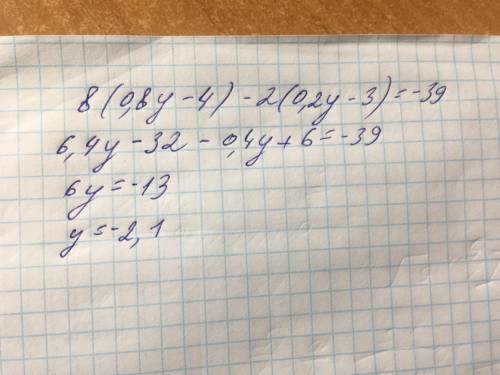 8(0,8y-4)-2(0,2y-3)=-39
6,4y-32-0,4y+6=-39
6y=-13
y=-2,1